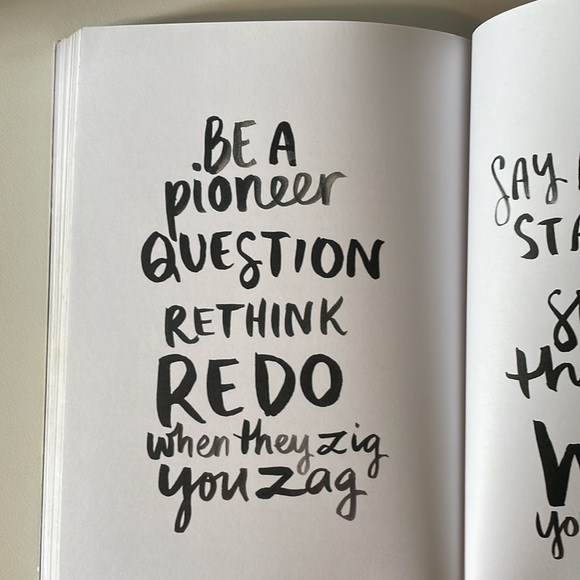 BE A
pioneer
QUESTION
RETHINK
REDO
when they zig
you zag
SAY